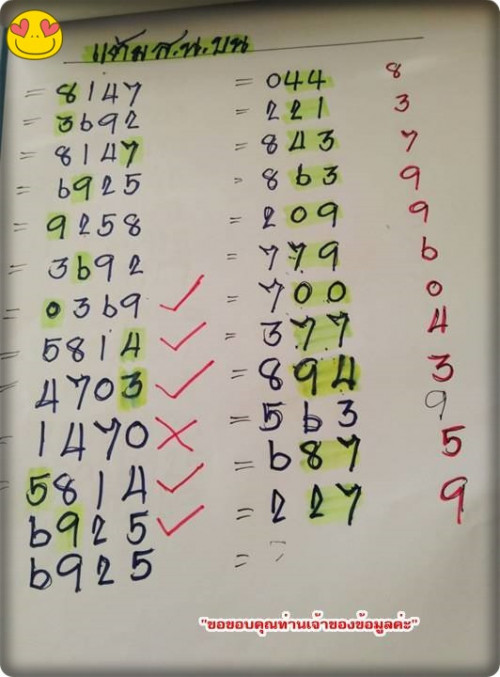 แต้ม ส.น. บน
= 8147 = 044 8
= 3692 = 221 3
= 8147 = 843 7
= 6925 = 863 9
= 9258 = 209 9
= 3692 = 779 6
= 0369 ✓ = 700 0
= 5814 ✓ = 377 4
= 4703 ✓ = 894 3
1470 ✗ = 563 9
= 5814 ✓ = 687 5
6925 ✓ = 227 9
6925 =
"ขอขอบคุณท่านเจ้าของข้อมูลค่ะ"